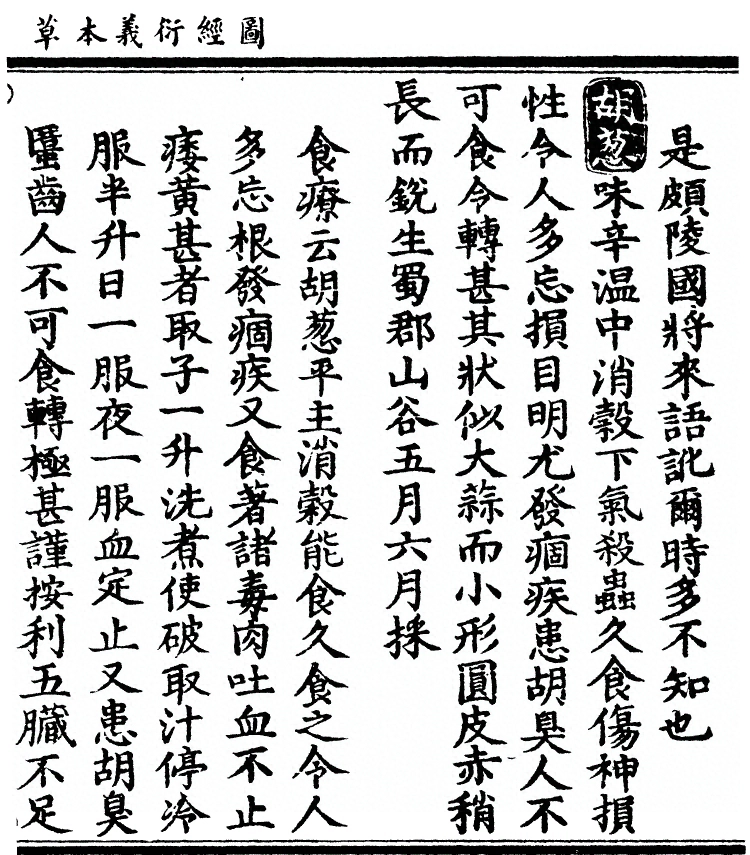 圖經衍義本草
是頗陵國將來語訛爾時多不知也
胡葱味辛温中消穀下氣殺蟲久食傷神損
性令人多忘損目明尤發痼疾患胡臭人不
可食令轉甚其狀似大蒜而小形圓皮赤稍
長而銳生蜀郡山谷五月六月採
食療云胡葱平主消穀能食久食之令人
多忘根發痼疾又食著諸毒肉吐血不止
痿黃甚者取子一升洗煮使破取汁停冷
服半升日一服夜一服血定止又患胡臭
䘌齒人不可食轉極甚謹按利五臟不足